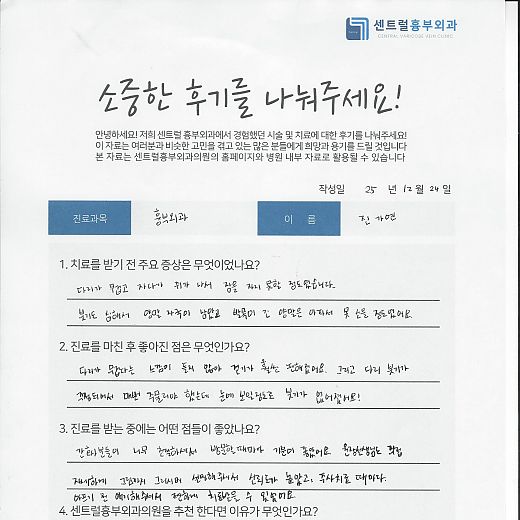 센트럴흉부외과
CENTRAL VARICOSE VEIN CLINIC
소중한 후기를 나눠주세요!
안녕하세요! 저희 센트럴 흉부외과에서 경험했던 시술 및 치료에 대한 후기를 나눠주세요!
이 자료는 여러분과 비슷한 고민을 겪고 있는 많은 분들에게 희망과 용기를 드릴 것입니다
본 자료는 센트럴흉부외과의원의 홈페이지와 병원 내부 자료로 활용될 수 있습니다
작성일 25 년 12 월 24 일
진료과목 흉부외과 이 름 진가연
1. 치료를 받기 전 주요 증상은 무엇이었나요?
다리가 무겁고 자다가 쥐가 나서 잠을 자지 못할 정도였습니다.
붓기도 심해서 양말 자국이 남았고 발목이 긴 양말은 아파서 못 신을 정도였어요
2. 진료를 마친 후 좋아진 점은 무엇인가요?
다리가 무겁다는 느낌이 들지 않아 걷기가 훨씬 편해졌어요. 그리고 다리 붓기가
매번 주물러야 했는데 눈에 보일정도로 붓기가 없어졌어요!
3. 진료를 받는 중에는 어떤 점들이 좋았나요?
간호사분들이 너무 친절하셔서 방문할때마다 기분이 좋았어요 원장선생님도 직접
자세하게 그림까지 그리시며 설명해주셔서 신뢰도가 높았고, 주사치료 때마다
아프기 전 얘기해주셔서 편하게 치료받을 수 있었어요
4. 센트럴흉부외과의원을 추천 한다면 이유가 무엇인가요?